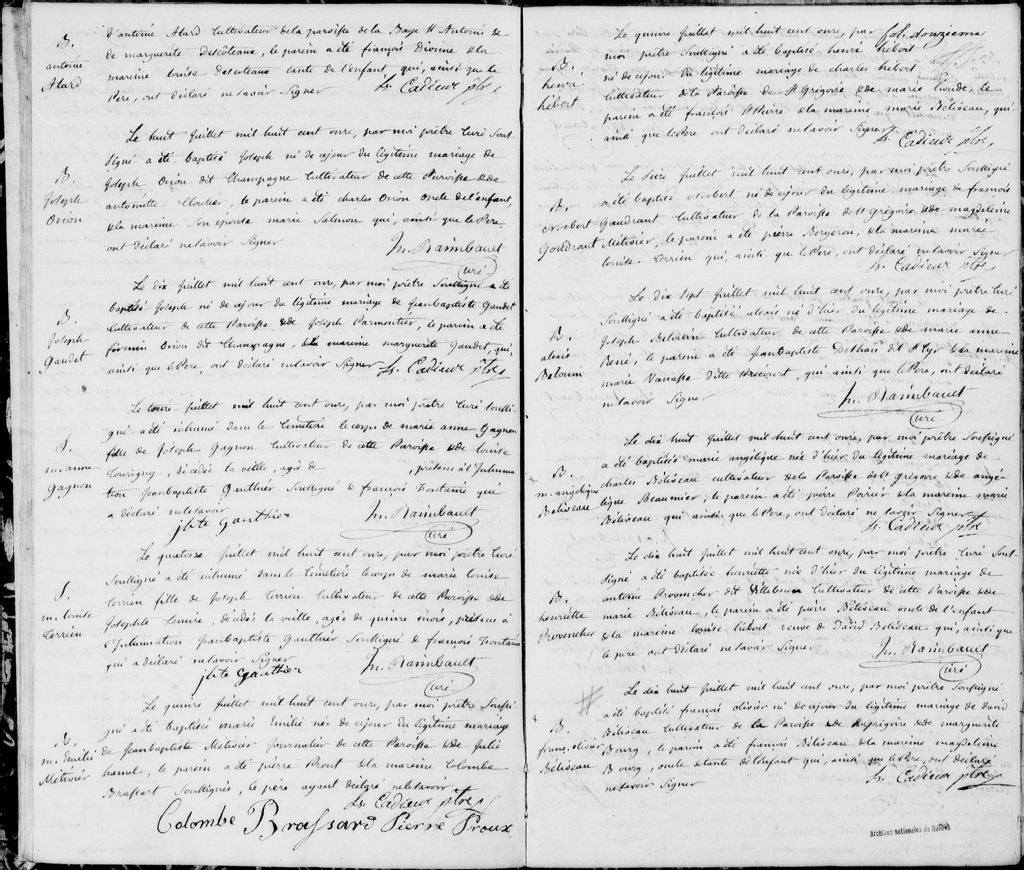 B.
antoine
Alard
d'antoine Alard Cultivateur de la paroisse de la Baye St Antoine &
de marguerite Descoteaux, le parein a été françois Dionne & la
mareine louise Descoteaux tante de l'enfant, qui, ainsi que le
Pere, ont déclaré ne savoir Signer
Ls. Cadieux ptre
B.
Joseph
Orion
Le huit Juillet mil huit cent onze, par moi prêtre Curé Sous
Signé a été baptisé Joseph né de ce jour du légitime mariage de
Joseph Orion dit Champagne Cultivateur de cette Paroisse & de
antoinette Cloutier, le parein a été charles Orion Oncle de l'enfant,
& la mareine Son epouse marie Salmon qui, ainsi que le Pere,
ont déclaré ne savoir Signer
Jn. Raimbault
Curé
B.
Joseph
Gaudet
Le dix Juillet mil huit cent onze, par moi prêtre Soussigné a été
baptisé Joseph né de ce jour du légitime mariage de Jeanbaptiste Gaudet
Cultivateur de cette Paroisse & de Joseph Parmentier, le parein a été
firmin Orion dit Champagne, & la mareine marguerite Gaudet, qui,
ainsi que le Pere, ont déclaré ne savoir Signer
Ls. Cadieux ptre
S.
m. anne
Gagnon
Le treize Juillet mil huit cent onze, par moi prêtre Curé soussi-
gné a été inhumé dans le Cimetière le corps de marie anne Gagnon
fille de Joseph Gagnon Cultivateur de cette Paroisse & de Louise
décédée la veille, agée de , présens à l'Inhuma
tion Jeanbaptiste Gauthier Soussigné & françois fontaine qui
a déclaré ne savoir
jbte Gauthier
Jn. Raimbault
Curé
S.
m. louise
Terrien
Le quatorze Juillet mil huit cent onze, par moi prêtre Curé
Soussigné a été inhumé dans le Cimetière le corps de marie louise
Terrien fille de Joseph Terrien Cultivateur de cette Paroisse & de
Josephte décédée la veille, agée de quinze mois, présens à
l'Inhumation Jeanbaptiste Gauthier Soussigné & françois fontaine
qui a déclaré ne savoir Signer
jbte Gauthier
Jn. Raimbault
Curé
B.
m. Emilie
Métivier
Le quinze Juillet mil huit cent onze, par moi prêtre Soussi-
gné a été baptisée marie Emilie née de ce jour du légitime mariage
de Jeanbaptiste Metivier Journalier de cette Paroisse & de Julie
hamel, le parein a été pierre Prout & la mareine Colombe
Brassart Soussignés, le père ayant déclaré ne le savoir
Ls Cadieux ptre
Colombe Brassard Pierre Proux
fol. douzieme
B.
henri
hébert
Le quinze Juillet mil huit cent onze, par
moi prêtre Soussigné a été baptisé henri hébert
né de ce jour du légitime mariage de charles hébert
Cultivateur de la Paroisse de St Grégoire & de marie le
parein a été françois St Pierre & la mareine marie Béliveau, qui
ainsi que le Pere ont déclaré ne savoir Signer
Ls. Cadieux ptre
B.
Norbert
Goudraut
Le Seize Juillet mil huit cent onze, par moi prêtre Soussigné
a été baptisé Norbert né de ce jour du légitime mariage de francois
Gaudraut Cultivateur de la Paroisse de St Grégoire & de magdeleine
Métivier, le parein a été pierre Bergeron, & la mareine marie
louise Terrien qui, ainsi que le Pere, ont déclaré ne savoir Signer
Ls. Cadieux ptre
B.
alexis
Belouin
Le dix Sept Juillet mil huit cent onze, par moi Prêtre Curé
Soussigné a été baptisé alexis né d'hier du légitime mariage de
Joseph Belouin Cultivateur de cette Paroisse & de marie anne
René, le parein a été Jeanbaptiste dit St Cyr & la mareine
marie Vanasse qui, ainsi que le Pere, ont déclaré
ne savoir Signer
Jn. Raimbault
Curé
B.
m. angelique
Beliveau
Le dix huit Juillet mil huit cent onze, par moi prêtre Soussigné
a été baptisée marie angelique née d'hier du légitime mariage de
charles Béliveau cultivateur de la Paroisse de St Grégoire & de angé-
lique Beaumier, le parein a été pierre Poirier & la mareine marie
Béliveau qui ainsi que le Pere, ont déclaré ne savoir Signer
Ls. Cadieux ptre
B.
henriette
Provencher
Le dix huit Juillet mil huit cent onze, par moi prêtre Curé Sous-
signé a été baptisée henriette née d'hier du légitime mariage de
antoine Provencher dit Villebrun Cultivateur de cette Paroisse & de
marie Béliveau, le parein a été pierre Béliveau oncle de l'enfant
& la mareine louise hébert veuve de David Beliveau qui, ainsi que
le pere ont déclaré ne savoir Signer
Jn. Raimbault
Curé
#
B.
franç. olivier
Béliveau
Le dix huit Juillet mil huit cent onze, par moi prêtre Soussigné
a été baptisé françois olivier né de ce jour du légitime mariage de david
Béliveau Cultivateur de la Paroisse de St Grégoire & de marguerite
Bourg, le parein a été françois Béliveau & la mareine magdeleine
Bourg, oncle & tante de l'enfant qui, ainsi que le Pere, ont déclaré
ne savoir Signer
Ls. Cadieux ptre
Archives nationales du Québec